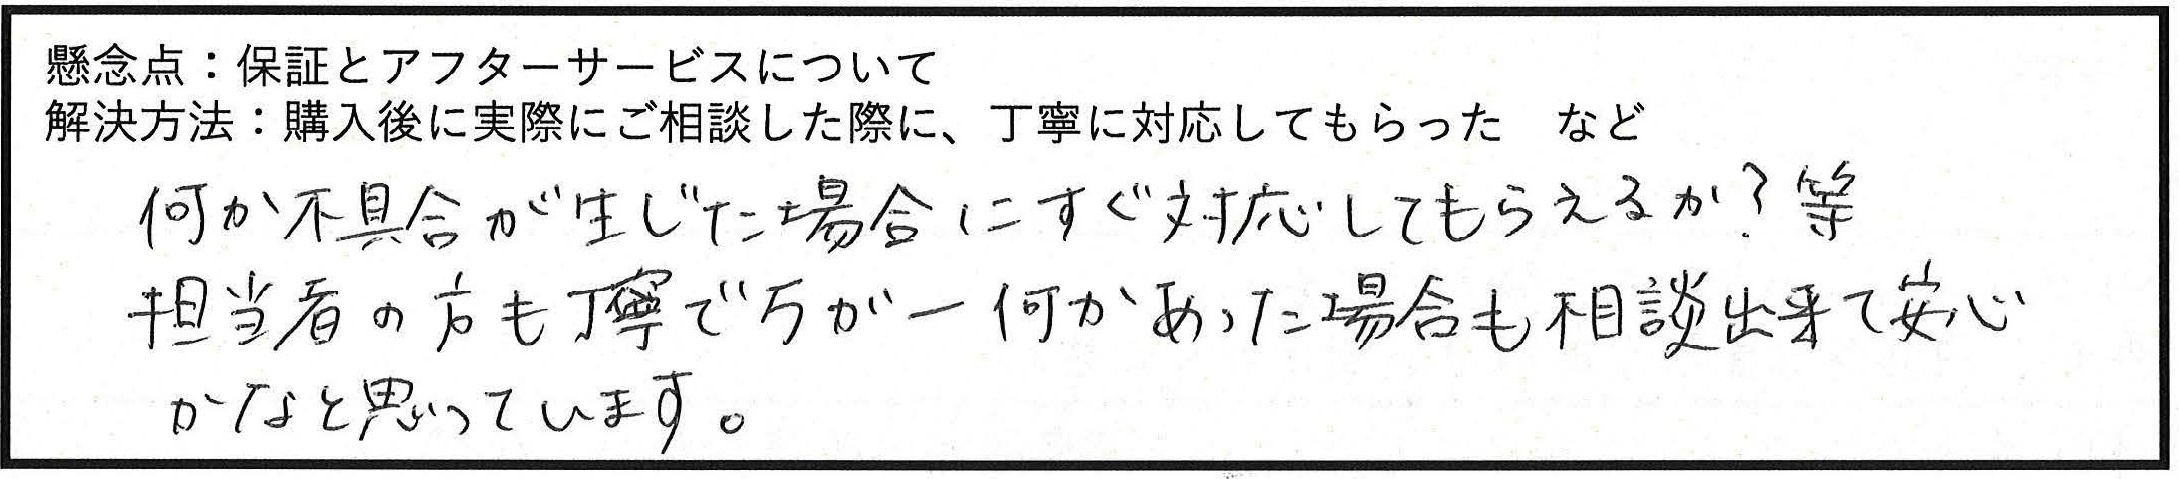 懸念点：保証とアフターサービスについて
解決方法：購入後に実際にご相談した際に、丁寧に対応してもらった　など
何か不具合が生じた場合にすぐ対応してもらえるか？等
担当者の方も丁寧で万が一何かあった場合も相談出来て安心
かなと思っています。